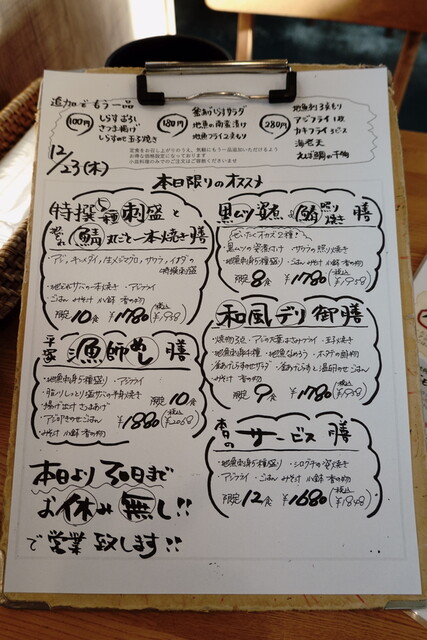 追加でもう一品
100円
しらすおろし
さつま揚げ
しらすのせ玉子焼き
180円
釜あげしらすサラダ
地魚の南蛮漬け
地魚フライ2ヶもり
280円
地魚刺3点もり
アジフライ1枚
カキフライ3ピス
海老天
丸干鰯の干物
定食をお召し上がりのうえ、気軽にもう一品追加いただけるよう
お得な価格設定になっております
小品料理のみでのご注文はご容赦くださいませ
12/23(木)
本日限りのオススメ
特撰五種刺盛と
鯖丸ごと一本焼き膳
・アジ、キンメダイ、生メジマグロ、サワラ、イナダの
特撰刺盛
・アジフライ
・ごはん みそ汁 小鉢 香の物
限定10食 ¥1780(税込¥1958)
平塚漁師めし膳
・地魚刺身5種盛り ・アジフライ
・脂ノリしっとり 塩サバの半身焼き
・揚げ出汁 さつまあげ
・アジ叩きのせごはん
・みそ汁 小鉢 香の物
限定10食
¥1880(税込¥2068)
黒ムツ煮と鰆照り焼き膳
ぜいたくオカズ2種!
・黒ムツの煮付け ・サワラの照り焼き
・地魚刺身5種盛り ・ごはん みそ汁 小鉢 香の物
限定8食 ¥1780(税込¥1958)
和風デリ御膳
・焼物3点 ・アジの大葉はさみフライ ・玉子焼き
・みそ汁 香の物
限定9食 ¥1780(税込¥1958)
本日のサービス膳
・地魚刺身5種盛り ・シログチの煮焼き
・アジフライ ・ごはん みそ汁 小鉢 香の物
限定12食 ¥1680(税込¥1848)
本日より30日まで
お休み無し!!
で営業致します!!